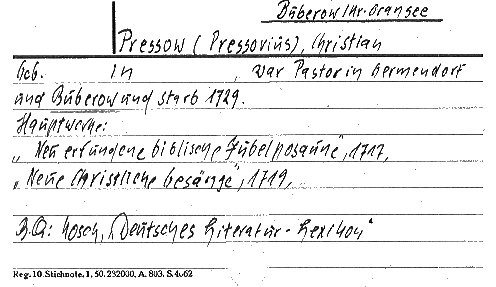 Büberow Kr. Gransee
Pressow (Pressovius), Christian
Geb. in , war Pastor in Germendorf
und Büberow und starb 1729.
Hauptwerke:
„Neu erfundene biblische Jubelposaune", 1717,
„Neue Christliche Gesänge", 1719,
B.Q: Kosch, „Deutsches Literatur-Lexikon"
Reg. 10. Stichnote. 1, 50. 232000. A. 803. S. 4062